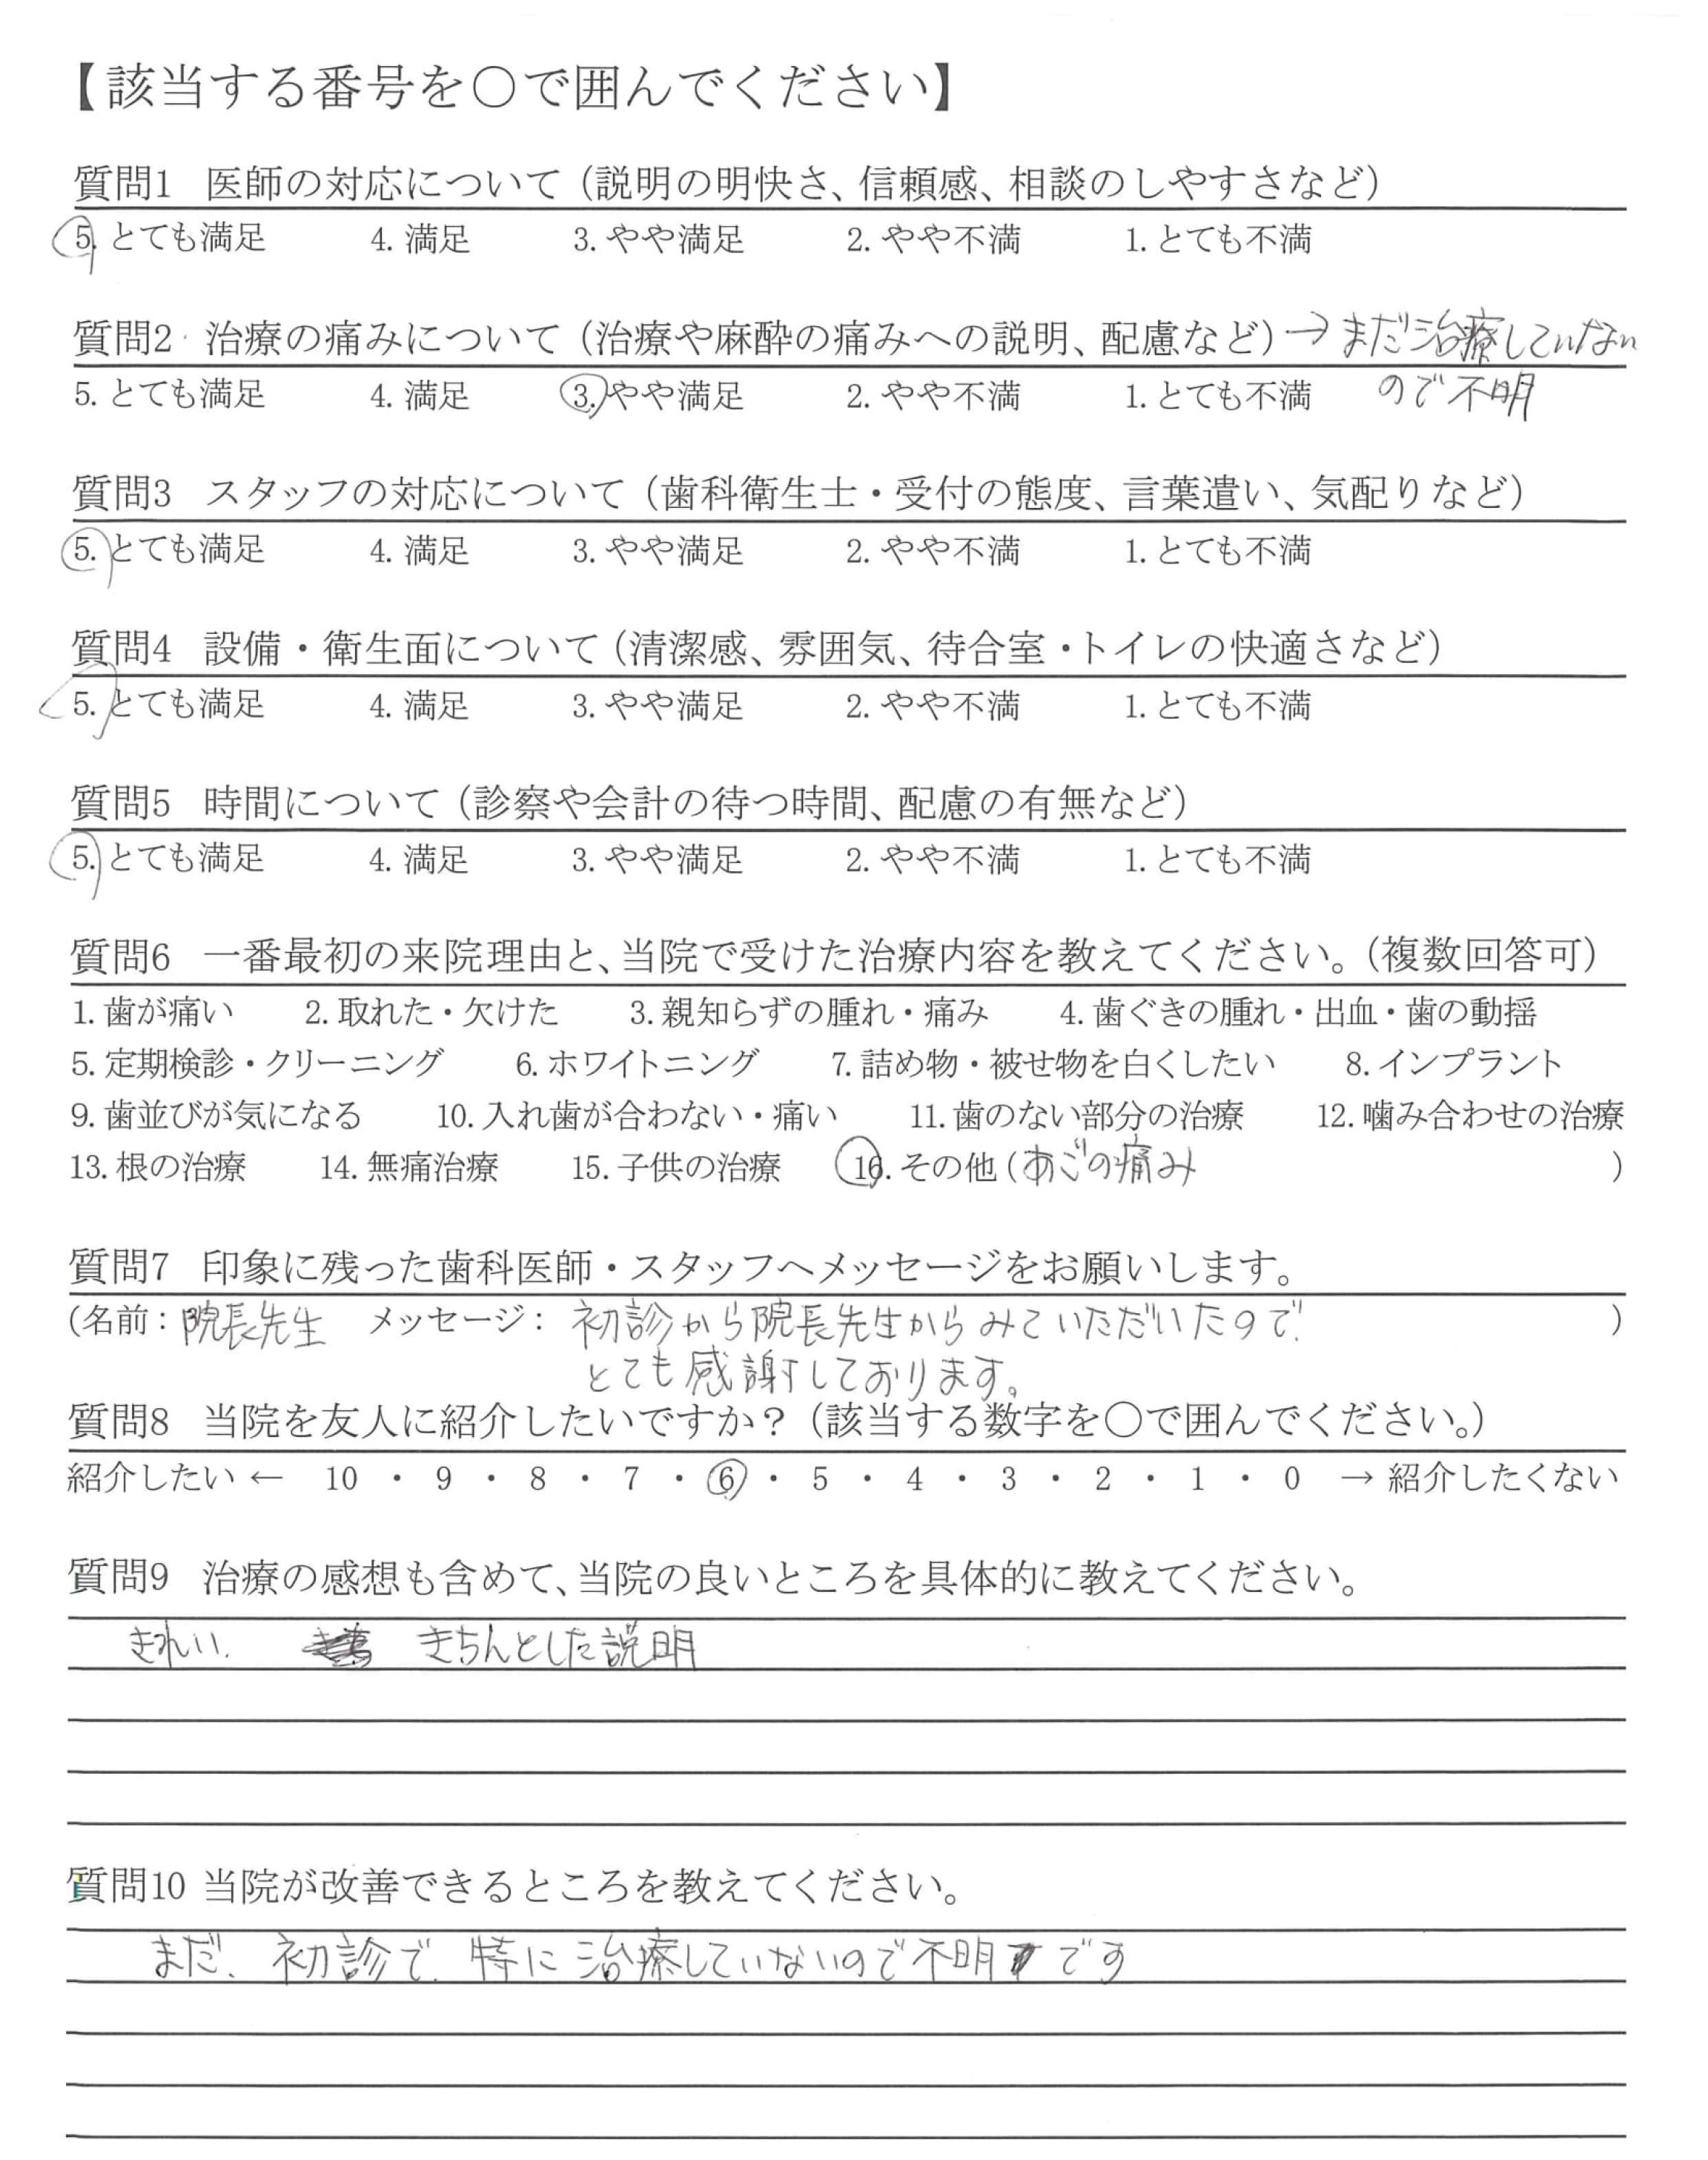 【該当する番号を〇で囲んでください】
質問1 医師の対応について（説明の明快さ、信頼感、相談のしやすさなど）
5. とても満足 4. 満足 3. やや満足 2. やや不満 1. とても不満
質問2 治療の痛みについて（治療や麻酔の痛みへの説明、配慮など）→まだ治療していない
5. とても満足 4. 満足 3. やや満足 2. やや不満 1. とても不満 ので不明
質問3 スタッフの対応について（歯科衛生士・受付の態度、言葉遣い、気配りなど）
5. とても満足 4. 満足 3. やや満足 2. やや不満 1. とても不満
質問4 設備・衛生面について（清潔感、雰囲気、待合室・トイレの快適さなど）
5. とても満足 4. 満足 3. やや満足 2. やや不満 1. とても不満
質問5 時間について（診察や会計の待つ時間、配慮の有無など）
5. とても満足 4. 満足 3. やや満足 2. やや不満 1. とても不満
質問6 一番最初の来院理由と、当院で受けた治療内容を教えてください。（複数回答可）
1. 歯が痛い 2. 取れた・欠けた 3. 親知らずの腫れ・痛み 4. 歯ぐきの腫れ・出血・歯の動揺
5. 定期検診・クリーニング 6. ホワイトニング 7. 詰め物・被せ物を白くしたい 8. インプラント
9. 歯並びが気になる 10. 入れ歯が合わない・痛い 11. 歯のない部分の治療 12. 噛み合わせの治療
13. 根の治療 14. 無痛治療 15. 子供の治療 16. その他（あごの痛み ）
質問7 印象に残った歯科医師・スタッフへメッセージをお願いします。
（名前：院長先生 メッセージ：初診から院長先生からみていただいたので ）
とても感謝しております。
質問8 当院を友人に紹介したいですか？（該当する数字を〇で囲んでください。）
紹介したい ← 10 ・ 9 ・ 8 ・ 7 ・ 6 ・ 5 ・ 4 ・ 3 ・ 2 ・ 1 ・ 0 → 紹介したくない
質問9 治療の感想も含めて、当院の良いところを具体的に教えてください。
きれい. きちんとした説明
質問10 当院が改善できるところを教えてください。
まだ、初診で、特に治療していないので不明です